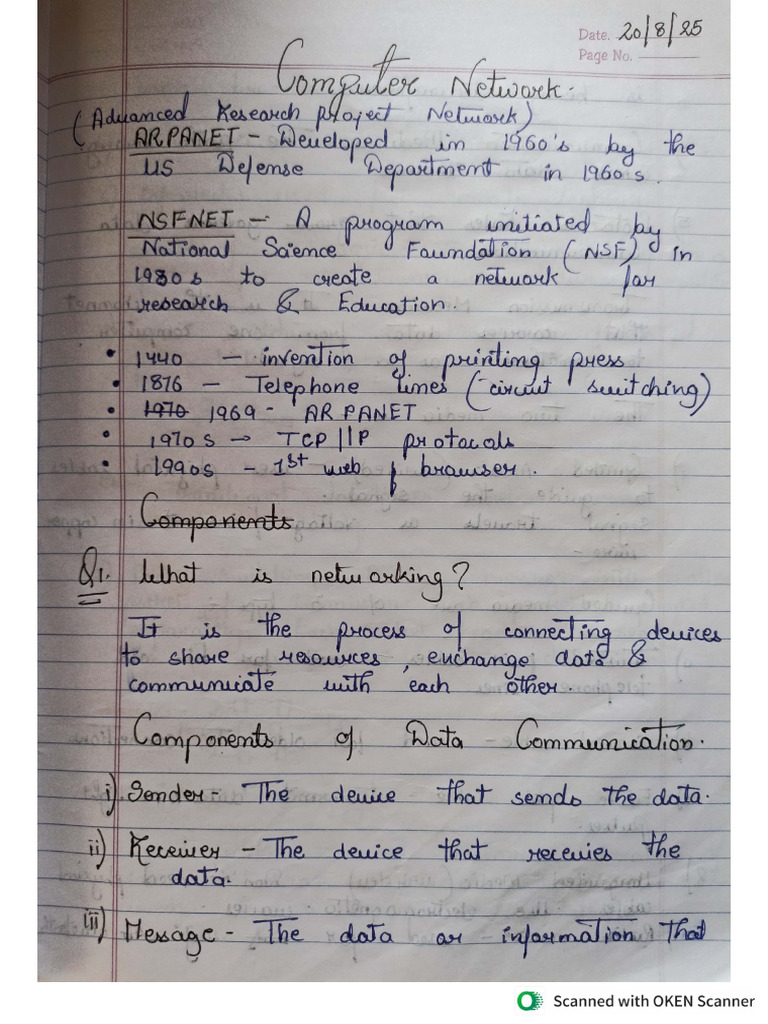 Date. 20/8/25
Page No.
Computer Network.
(Advanced Research Project Network)
ARPANET - Developed in 1960's by the
US Defense Department in 1960s.
NSFNET - A program initiated by
National Science Foundation (NSF) in
1980s to create a network for
research & Education.
• 1440 - invention of printing press
• 1876 - Telephone lines (circuit switching)
• 1970 1969 - ARPANET
• 1970s → TCP/IP protocols
• 1990s - 1st web browser.
Components
Q1. What is networking?
It is the process of connecting devices
to share resources, exchange data &
communicate with each other.
Components of Data Communication.
i) Sender - The device that sends the data.
ii) Receiver - The device that receives the
data.
iii) Message - The data or information that
Scanned with OKEN Scanner